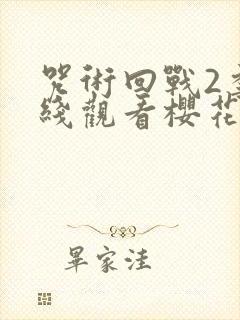 咒術回戰2
綫觀看櫻花
畢家洼